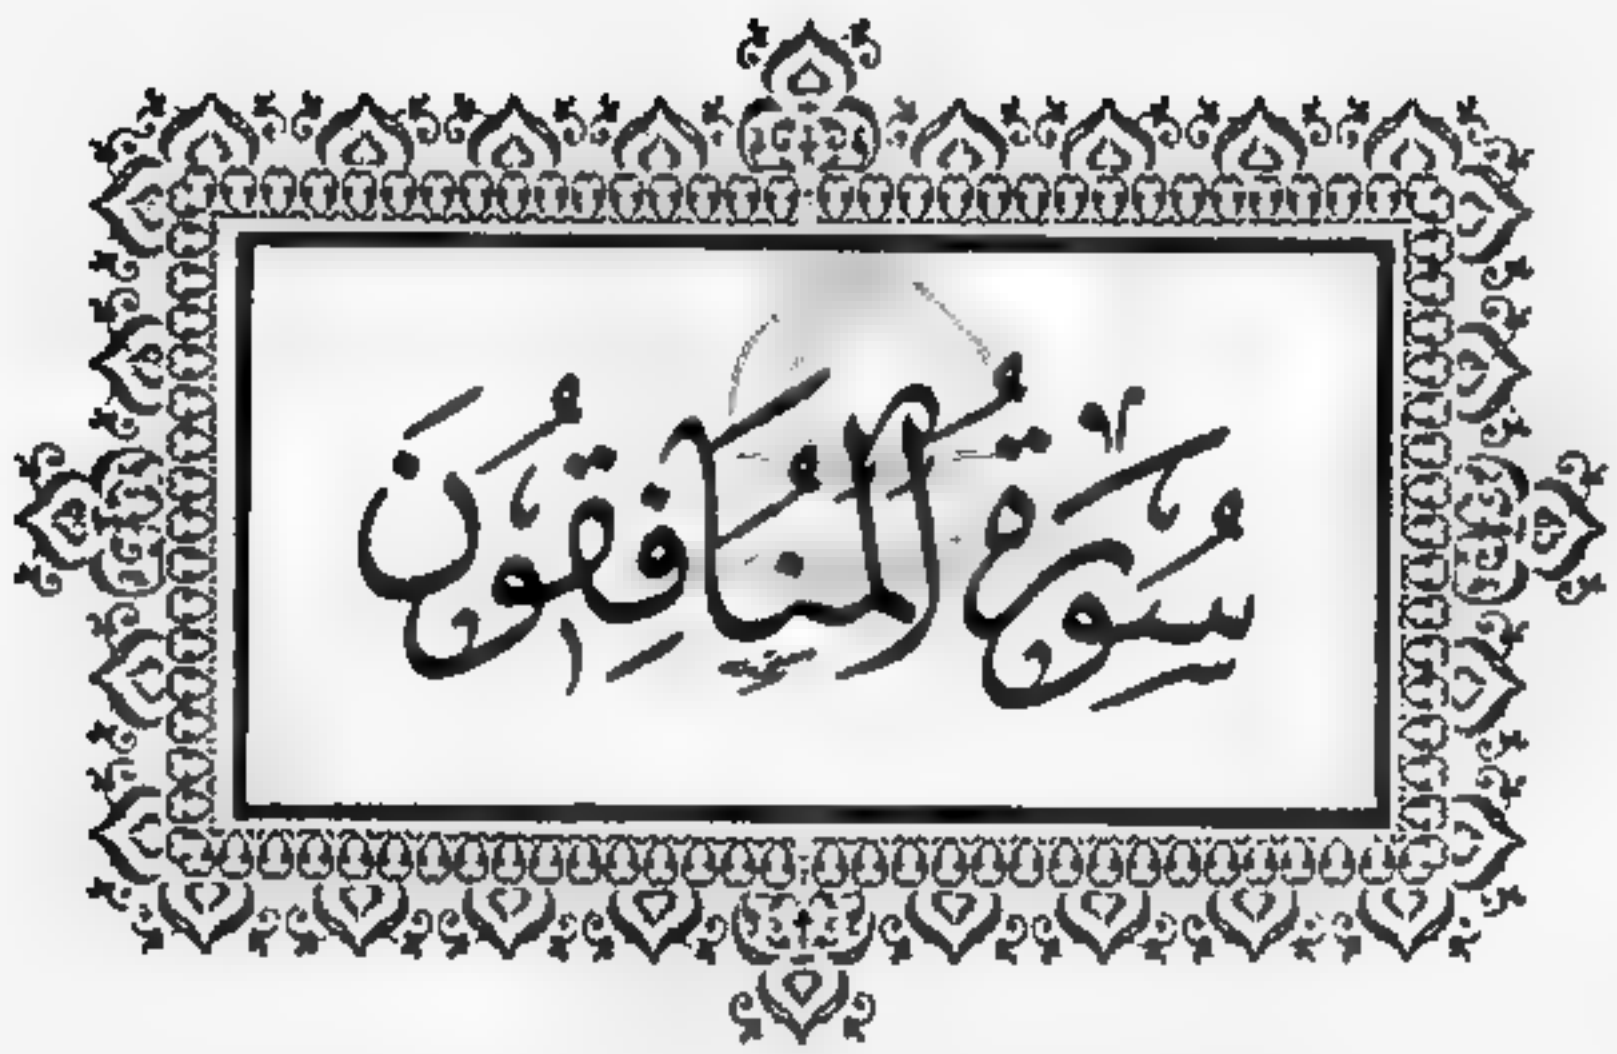 سُورَةُ الْمُنَافِقُونَ